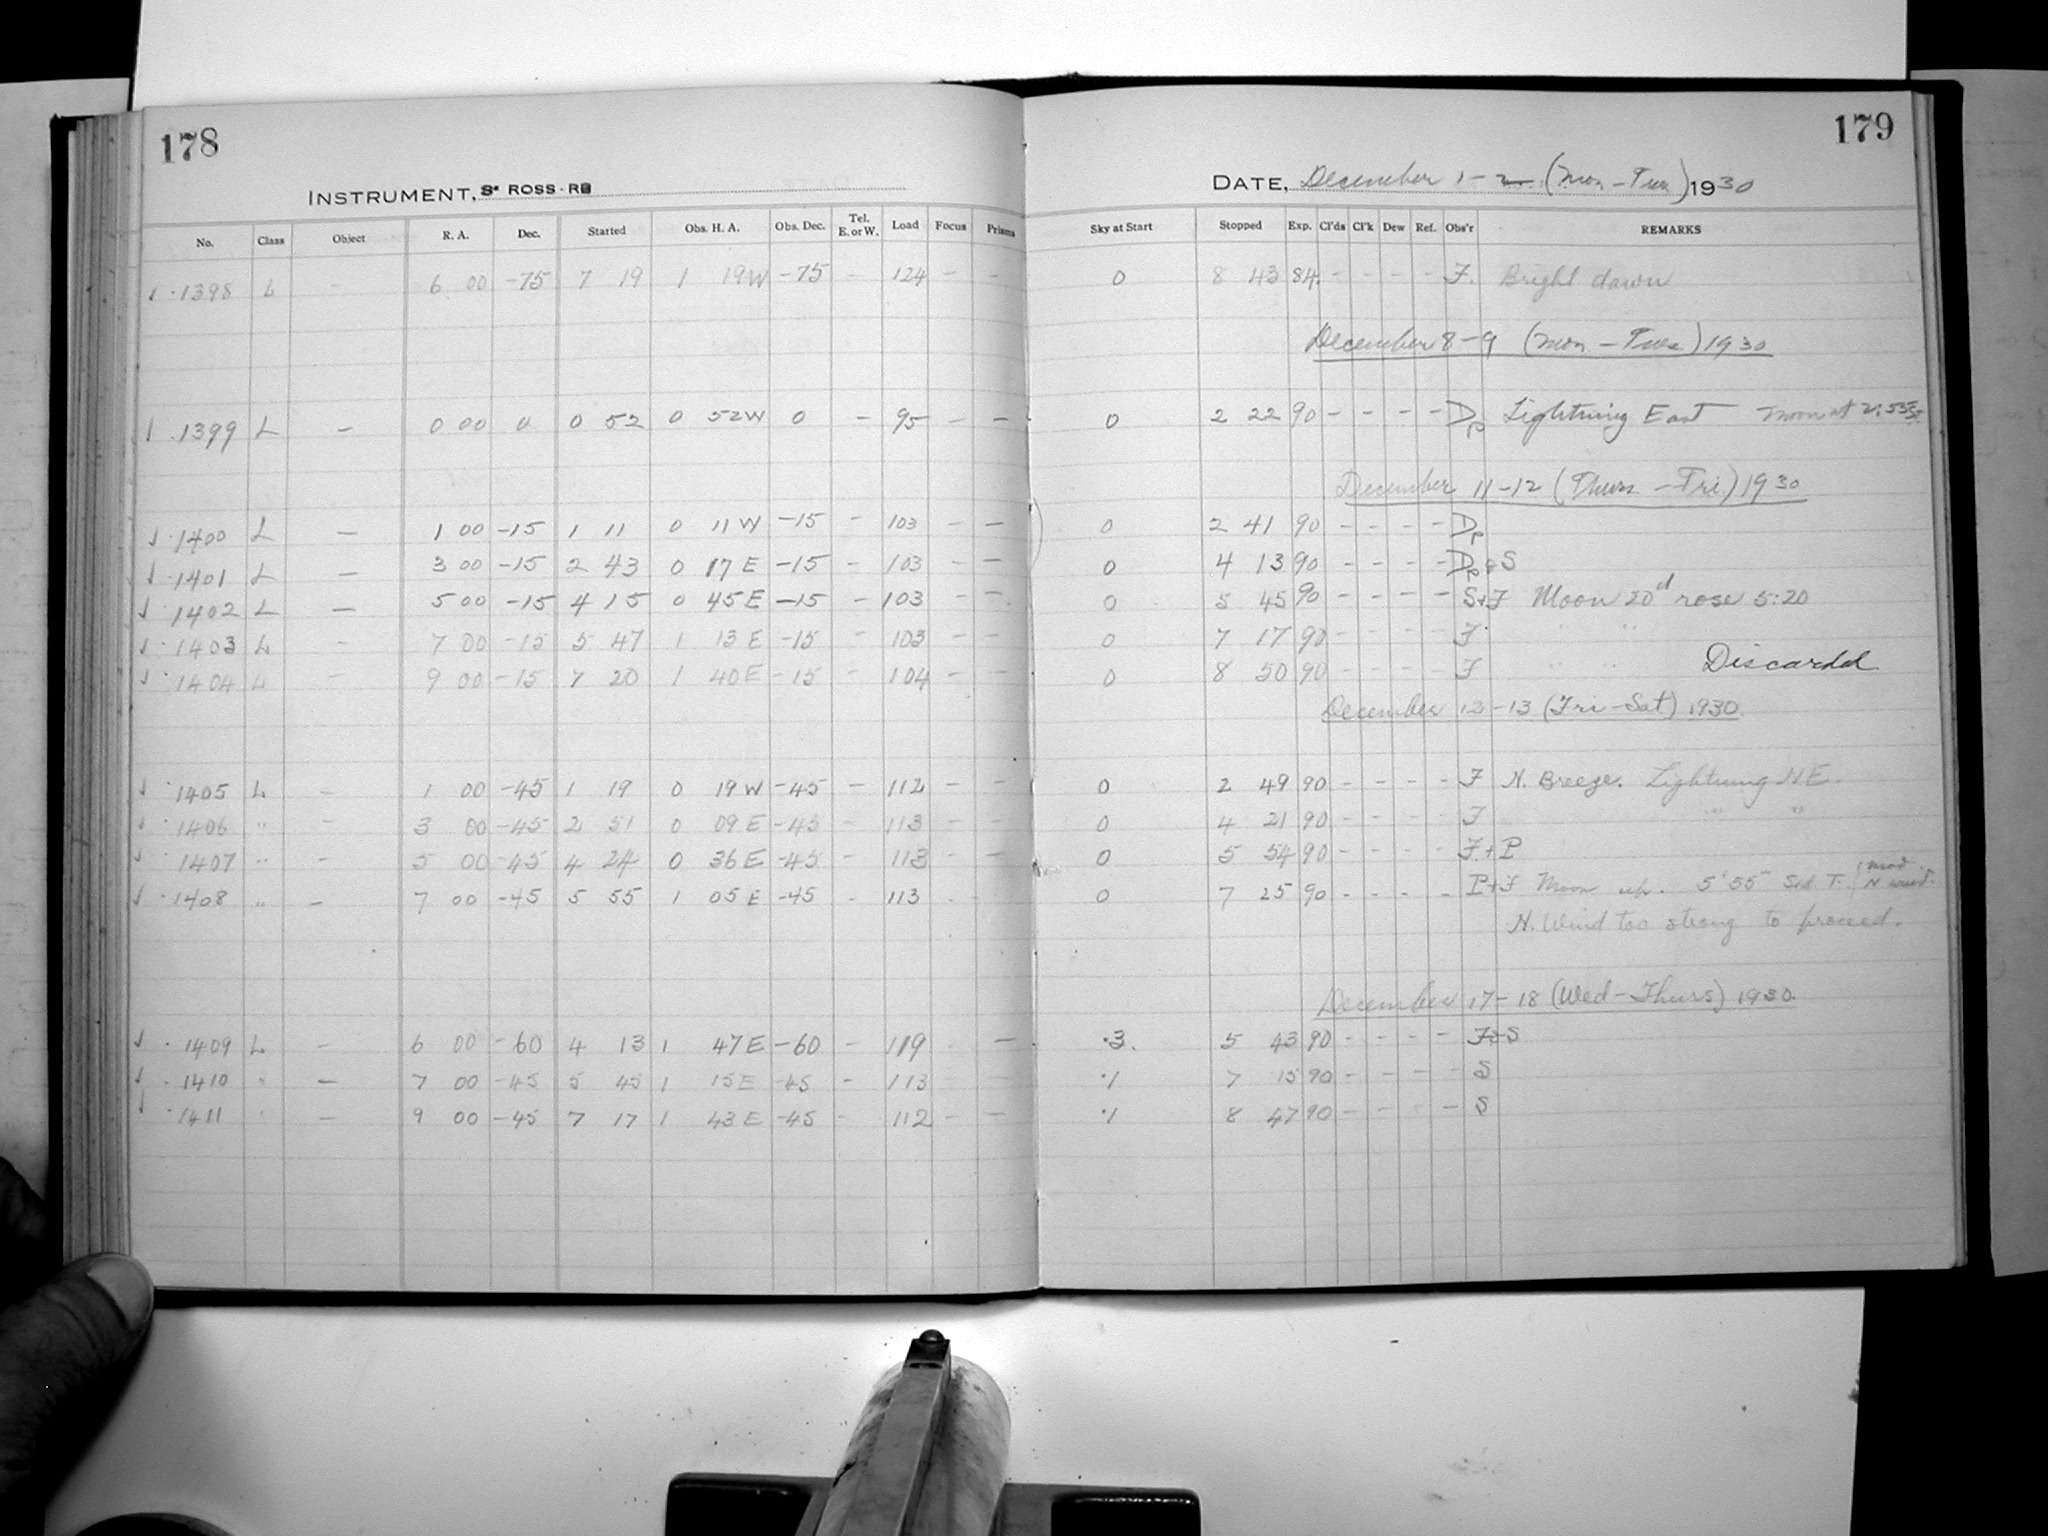 178
INSTRUMENT, ROSS-RB
No. Class Object R. A. Dec. Started Obs. H. A. Obs. Dec. Tel. E. or W. Load Focus Prisms
1398 L - 6 00 -75 7 19 1 19W -75 - 124 - -
1399 L - 0 00 0 0 52 0 52W 0 - 95 - -
1400 L - 1 00 -15 1 11 0 11W -15 - 103 - -
1401 L - 3 00 -15 2 43 0 17E -15 - 103 - -
1402 L - 5 00 -15 4 15 0 45E -15 - 103 - -
1403 L - 7 00 -15 5 47 1 13E -15 - 103 - -
1404 L - 9 00 -15 7 20 1 40E -15 - 104 - -
1405 L - 1 00 -45 1 19 0 19W -45 - 112 - -
1406 " - 3 00 -45 2 51 0 09E -45 - 113 - -
1407 " - 5 00 -45 4 24 0 36E -45 - 113 - -
1408 " - 7 00 -45 5 55 1 05E -45 - 113 - -
1409 L - 6 00 -60 4 13 1 47E -60 - 119 - -
1410 " - 7 00 -45 5 45 1 15E -45 - 113 - -
1411 " - 9 00 -45 7 17 1 43E -45 - 112 - -
179
DATE, December 1-2 (Mon-Tues) 1930
Sky at Start Stopped Exp. Cl'ds Cl'k Dew Ref. Obs'r REMARKS
0 8 43 84 - - - - F. Bright dawn
December 8-9 (Mon-Tues) 1930
0 2 22 90 - - - - Dp Lightning East Moon at 2:55
December 11-12 (Thurs-Fri) 1930
0 2 41 90 - - - - Dp
0 4 13 90 - - - - Dp+S
0 5 45 90 - - - - S+F Moon 20d rose 5:20
0 7 17 90 - - - - F " "
0 8 50 90 - - - - F " " Discarded
December 12-13 (Fri-Sat) 1930.
0 2 49 90 - - - - F N. Breeze. Lightning N.E.
0 4 21 90 - - - - F " "
0 5 54 90 - - - - F.+P
0 7 25 90 - - - - P+F Moon up. 5'55 Sid. T. mod N wind.
N. Wind too strong to proceed.
December 17-18 (Wed-Thurs) 1930.
.3. 5 43 90 - - - - F+S
.1 7 15 90 - - - - S
.1 8 47 90 - - - - S